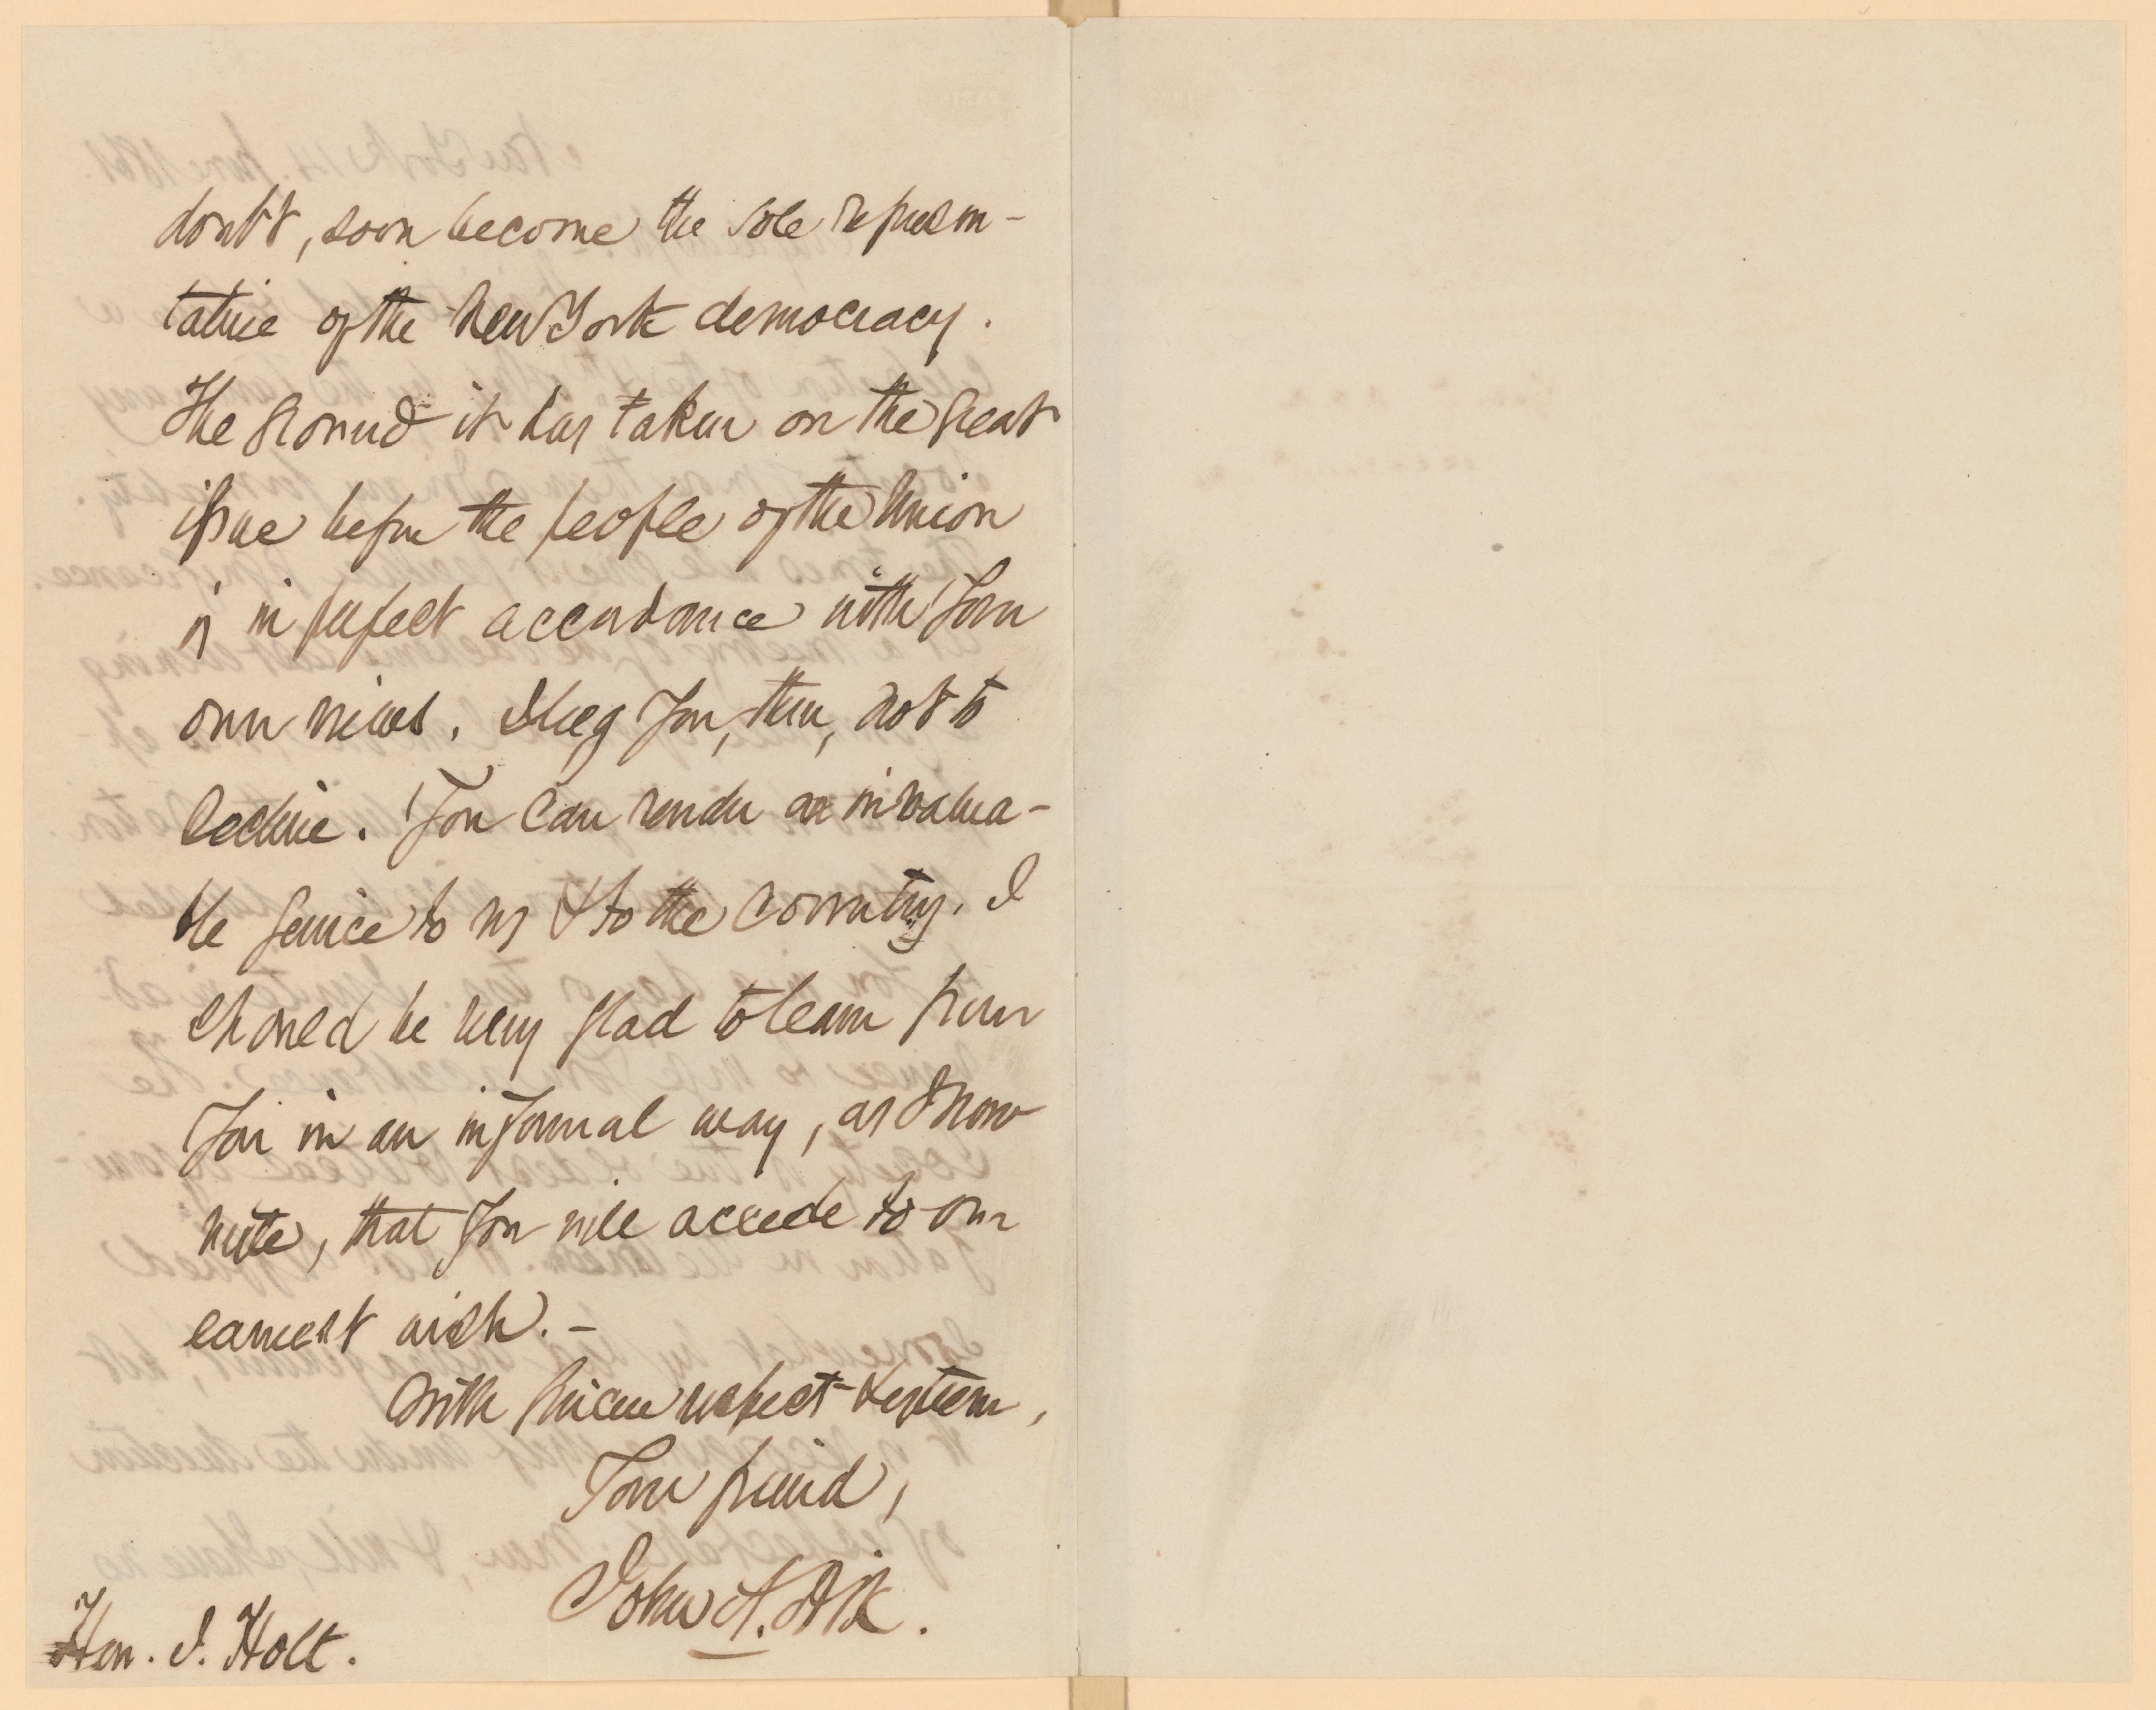 doubt, soon become the sole represen-
tative of the New York democracy.
The ground it has taken on the great
issue before the people of the Union
is in perfect accordance with your
own views. I beg you, then, not to
decline. You can render an invalua-
ble service to us & to the country. I
should be very glad to learn from
you in an informal way, as I now
write, that you will accede to our
earnest wish. -
With sincere respect & esteem,
Your friend,
John A. Dix.
Hon. J. Holt.